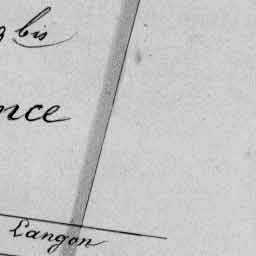 bis
nce
Langon